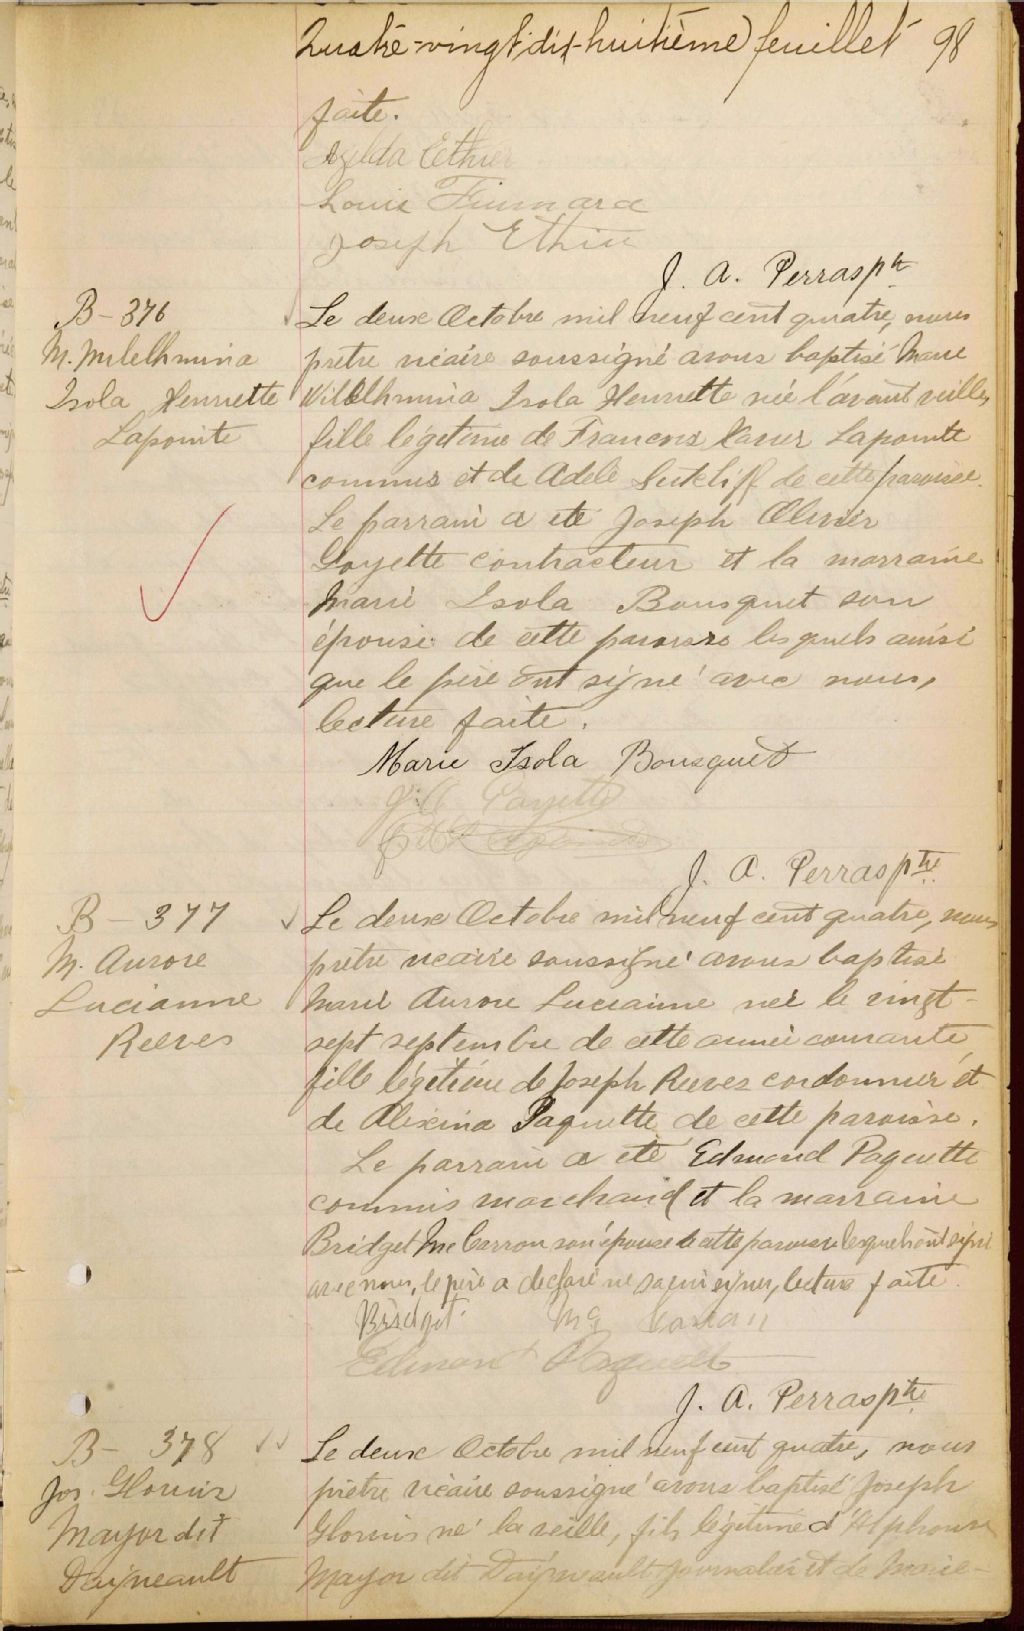 Quatre-vingt-dix-huitième feuillet 98
faite.
Azelda Ethier
Louis
Joseph Ethier
J. A. Perras ptre
B-376
M. Milelhmina
Isola Henriette
Lapointe
Le deux Octobre mil neuf cent quatre, nous
prêtre vicaire soussigné avons baptisé Marie
Willelhmina Isola Henriette née l'avant veille,
fille légitime de Francois Xavier Lapointe
commis et de Adèle Sutcliff de cette paroisse.
Le parrain a été Joseph Olivier
Goyette contracteur et la marraine
Marie Isola Bousquet son
épouse de cette paroisse lesquels ainsi
que le père ont signé avec nous,
lecture faite.
Marie Isola Bousquet
J. A. Perras ptre
B-377
M. Aurore
Lucianne
Reeves
Le deux Octobre mil neuf cent quatre, nous
prêtre vicaire soussigné avons baptisé
Marie Aurore Lucianne née le vingt-
sept septembre de cette année courante,
fille légitime de Joseph Reeves cordonnier et
de Alexina Paquette de cette paroisse.
Le parrain a été Edmond Paquette
commis marchand et la marraine
Bridget McCarron son épouse de cette paroisse lesquels ont signé
avec nous, le père a declaré ne savoir signer, lecture faite.
Bridget Mc Carran
Edmond Paquette
J. A. Perras ptre
B-378
Jos. Glorius
Mayor dit
Daigneault
Le deux Octobre mil neuf cent quatre, nous
prêtre vicaire soussigné avons baptisé Joseph
Glorius né la veille, fils légitime d'Alphonse
Mayor dit Daigneault journalier et de Marie-